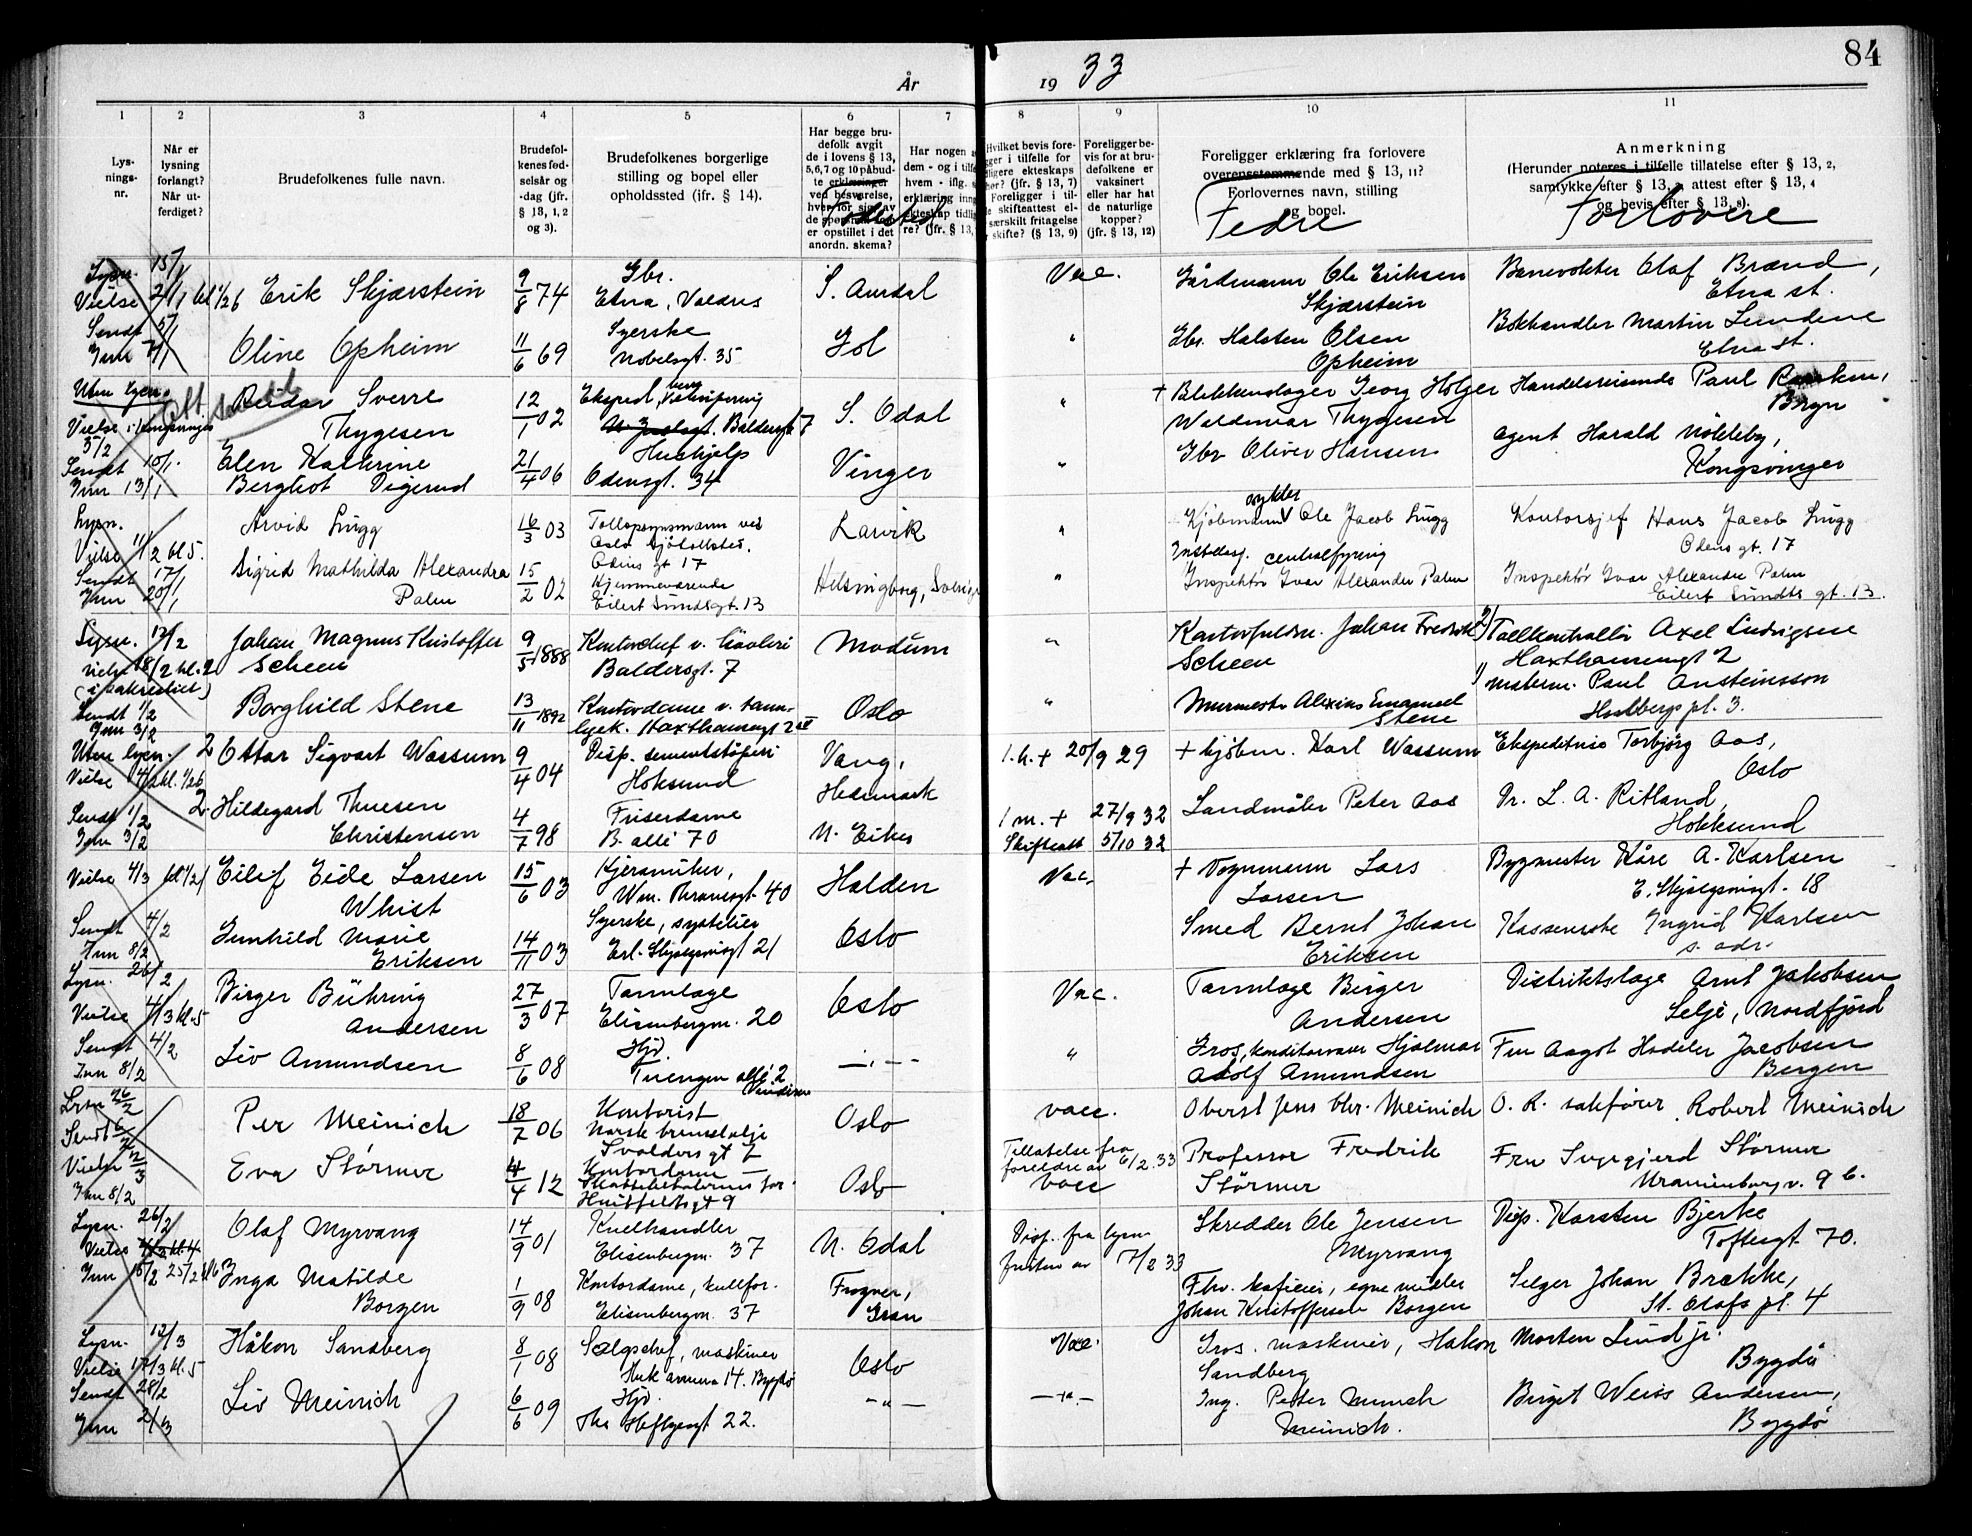 84
År 19 33
1 2 3 4 5 6 7 8 9 10 11
Lys-
nings-
nr.
Når er
lysning
forlangt?
Når ut-
ferdiget?
Brudefolkenes fulle navn.
Brudefol-
kenes fød-
selsår og
-dag (jfr.
§ 13, 1, 2
og 3).
Brudefolkenes borgerlige
stilling og bopel eller
opholdssted (jfr. § 14).
Har begge bru-
defolk avgit
de i lovens § 13,
5,6,7 og 10 påbud-
te erklæringer
ved besvarelse,
hver for sig, av
de spørsmål som
er opstillet i det
anordn. skema?
Fødested
Har nogen a
dem - og i tilfe
hvem - iflg. s
erklæring inng
ekteskap tidlig
re? (jfr. § 13,
Hvilket bevis fore-
ger i tilfelle for
ligere ekteskaps
hør? (jfr. § 13, 7)
Foreligger i til-
e skifteattest el-
særskilt fritagelse
skifte? (§ 13, 9)
Foreligger be-
vis for at bru-
defolkene er
vaksinert
eller har hat
de naturlige
kopper?
(jfr. § 13, 12)
Foreligger erklæring fra forlovere
overensstemmende med § 13, 11?
Forlovernes navn, stilling
og bopel.
Fedre
Anmerkning
(Herunder noteres i tilfelle tillatelse efter § 13, 2,
samtykke efter § 13, 3, attest efter § 13, 4
og bevis efter § 13, 8).
Forlovere
Lysn. 15/1
Vielse 21/1 kl 1/2 6 Erik Skjærstein 9/8 74 Gbr. Etna, Valdres S. Aurdal Vac. Gårdmann Ole Eriksen Skjærstein Banevokter Olaf Brænd, Etna st.
Sendt 5/1
Inn 7/1 Oline Opheim 11/6 69 Syerske Nobelsgt. 35 Gol " Gbr. Halsten Olsen Opheim Bokhandler Martin Lundene Etna st.
Uten lysn. Reidar Sverre Thygesen 12/1 02 Eksped, Baldersgt 7 S. Odal " + Blikkenslager Georg Holger Waldemar Thygesen Handelsreisende Paul Bryn
Vielse i
3/2
Sendt 10/1
Inn 13/1 Elen Kathrine Bergliot Digerud 21/4 06 Hushjelp Odensgt. 34 Vinger " Gbr Oliver Hansen Agent Harald Nökleby, Kongsvinger
Lysn.
Vielse 11/2 kl 5. Arvid Lugg 16/3 03 Tollopsynsmann ved Oslo Sjötollsted, Odins gt 17 Larvik " Kjöbmann Ole Jacob Lugg Kontorsjef Hans Jacob Lugg Odens gt. 17
Sendt 17/1
Inn 20/1 Sigrid Mathilda Alexandra Palm 15/2 02 Hjemmeværende Eilert Sundtsgt. 13 Helsingborg, Sverige " centralfyring Inspektör Ivar Alexander Palm Inspektör Ivar Alexander Palm Eilert Sundts gt. 13.
Lysn. 12/2
Vielse 18/2 kl. 2
(i sakristiet) Johan Magnus Kristoffer Scheen 9/5 1888 Baldersgt. 7 Modum " Johan Fredrik Scheen 2) Tollkontrollör Axel Ludvigsen Haxthausensgt 2
Sendt 1/2
Inn 3/2 Borghild Stene 13/11 1892 Kontordame v. Haxthausensgt 2 Oslo " Murmester Alexius Emanuel Stene 1) Paul Ansteinsson Holbergs pl. 3.
Uten lysn. 2 Ottar Sigvart Wassum 9/4 04 Disp. sementstöperi Hoksund Vang, Hedemark 1. h. + 20/9 29 + kjöbm. Karl Wassum Ekspeditrise Torbjörg Aas, Oslo
Sendt 1/2
Inn 3/2 2 Hildegard Thuesen Christensen 4/7 98 Friserdame B. alle 70 N. Eiker 1 m. + 27/9 32 Skifteatt 5/10 32 Landmåler Peter Aas Dr. L. A. Ritland, Hokksund
Vielse 4/3 Eilef Eide Larsen Whist 15/6 03 Wm. Thranesgt 40 Halden Vac. + Vognmann Lars Larsen Bygmester Kåre A. Karlsen E. Skjalgsøns gt. 18
Sendt 4/2
Inn 8/2 Gunhild Marie Eriksen 14/11 03 Syerske, systuen Erl. Skjalgsønsgt 21 Oslo Smed Bernt Johan Eriksen Ingrid Karlsen s. adr.
Lysn. 26/2
Vielse 4/3 kl. 5 Birger Bühring Andersen 27/3 07 Tannlæge Elisenbergvn. 20 Oslo Vac. Tannlæge Birger Andersen Distriktslæge Arnt Jakobsen Selje, Nordfjord
Sendt 4/2
Inn 8/2 Liv Amundsen 8/6 08 Hjd. Tuengen alle 2 Vinderen —"— " Gros, Hjalmar Adolf Amundsen Fru Aagot Hadeler Jacobsen Bergen
Lysn 26/2
Sendt 6/2 Per Meinich 18/7 06 Kontorist Svolders gt 7 Oslo vacc. Oberst Jens Chr. Meinich O. R. sakförer Robert Meinich
Vielse
Inn 8/2 Eva Störmer 4/4 12 Kontordame Huitfeldtsgt 9 Oslo Tillatelse fra foreldre av 6/2 33 vacc Professor Fredrik Störmer Fru Ingegjerd Störmer Uranienborgv. 9 b.
Lysn. 26/2
Olaf Myrvang 14/9 01 Kullhandler Elisenbergvn. 37 N. Odal Disp. fra lysn fristen av 7/2 33 Skredder Ole Jensen Myrvang Disp. Karsten Bjerke Toftesgt. 70.
Inga Matilde Borgen 1/9 08 Kontordame, kullfor. Elisenbergvn. 37 Frogner, Gran Fhv. egne midler Johan Kristoffersen Borgen Selger Johan Brække, St. Olafs pl. 4
Lysn. 12/3
Vielse 17/3 kl. 5 Håkon Sandberg 8/1 08 Salgschef, maskiner Huk avenue 14. Bygdö Oslo Vac. Gros. maskiner, Hakon Sandberg Morten Lind jr. Bygdö
Sendt 28/2
Inn 2/3 Liv Meinich 6/6 09 Hjd. Ths Heftyesgt 22. —"— —"— Ing. Petter Munch Meinich. Birgit Weiss Andersen, Bygdö